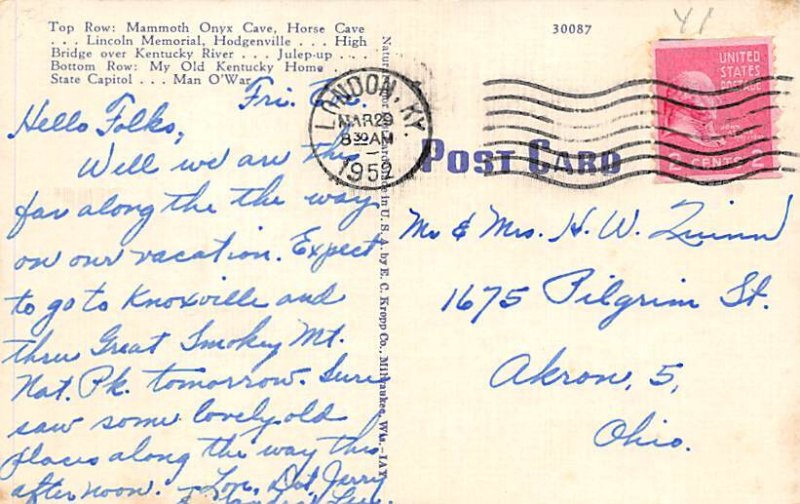 Top Row: Mammoth Onyx Cave, Horse Cave
. . . Lincoln Memorial, Hodgenville . . . High
Bridge over Kentucky River . . . Julep-up . . .
Bottom Row: My Old Kentucky Home . . .
State Capitol . . . Man O'War.
30087
41
UNITED
STATES
POSTAGE
JOHN
2 CENTS 2
LONDON, KY.
MAR 29
8 30 AM
1952
POST CARD
Fri. Eve.
Hello Folks,
Well we are this
far along the the way
on our vacation. Expect
to go to Knoxville and
thru Great Smokey Mt.
Nat. Pk. tomorrow. Sure
saw some lovely old
places along the way this
afternoon. Lon, Dot, Jerry
Made in U. S. A. by E. C. Kropp Co., Milwaukee, Wis.-1AY
Mr & Mrs. H. W. Quinn
1675 Pilgrim St.
Akron, 5,
Ohio.